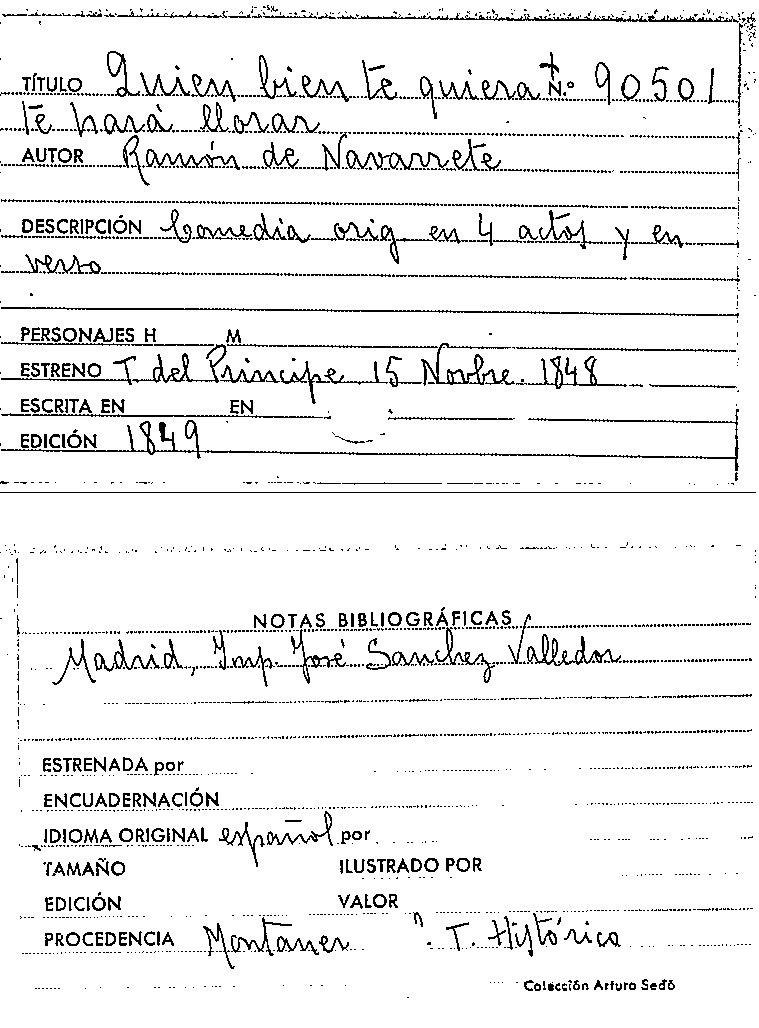 TÍTULO Quien bien te quiera N.º 90501
te hará llorar
AUTOR Ramón de Navarrete
DESCRIPCIÓN Comedia orig en 4 actos y en
verso
PERSONAJES H M
ESTRENO T. del Principe 15 Novbre. 1848
ESCRITA EN EN
EDICIÓN 1849
NOTAS BIBLIOGRÁFICAS
Madrid, Imp. José Sanchez Valledor
ESTRENADA por
ENCUADERNACIÓN
IDIOMA ORIGINAL español por
TAMAÑO ILUSTRADO POR
EDICIÓN VALOR
PROCEDENCIA Montaner T. Histórica
Colección Arturo Sedó